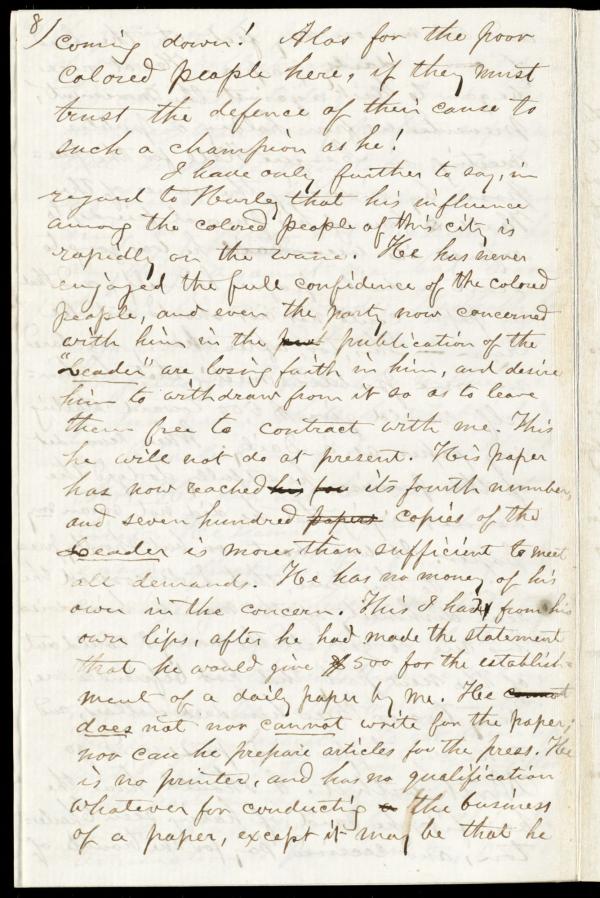 8/
coming down! Alas for the poor
colored people here, if they must
trust the defence of their cause to
such a champion as he!
I have only further to say, in
regard to Hurley that his influence
among the colored people of this city is
rapidly on the wane. He has never
enjoyed the full confidence of the colored
people, and even the party now concerned
with him in the publication of the
"Leader" are losing faith in him, and desire
him to withdraw from it so as to leave
them free to contract with me. This
he will not do at present. His paper
has now reached his for its fourth number,
and seven hundred papers copies of the
Leader is more than sufficient to meet
all demands. He has no money of his
own in the concern. This I had from his
own lips, after he had made the statement
that he would give $500 for the establish-
ment of a daily paper by me. He cannot
does not nor cannot write for the paper;
nor can he prepare articles for the press. He
is no printer, and has no qualification
whatever for conducting a the business
of a paper, except it may be that he